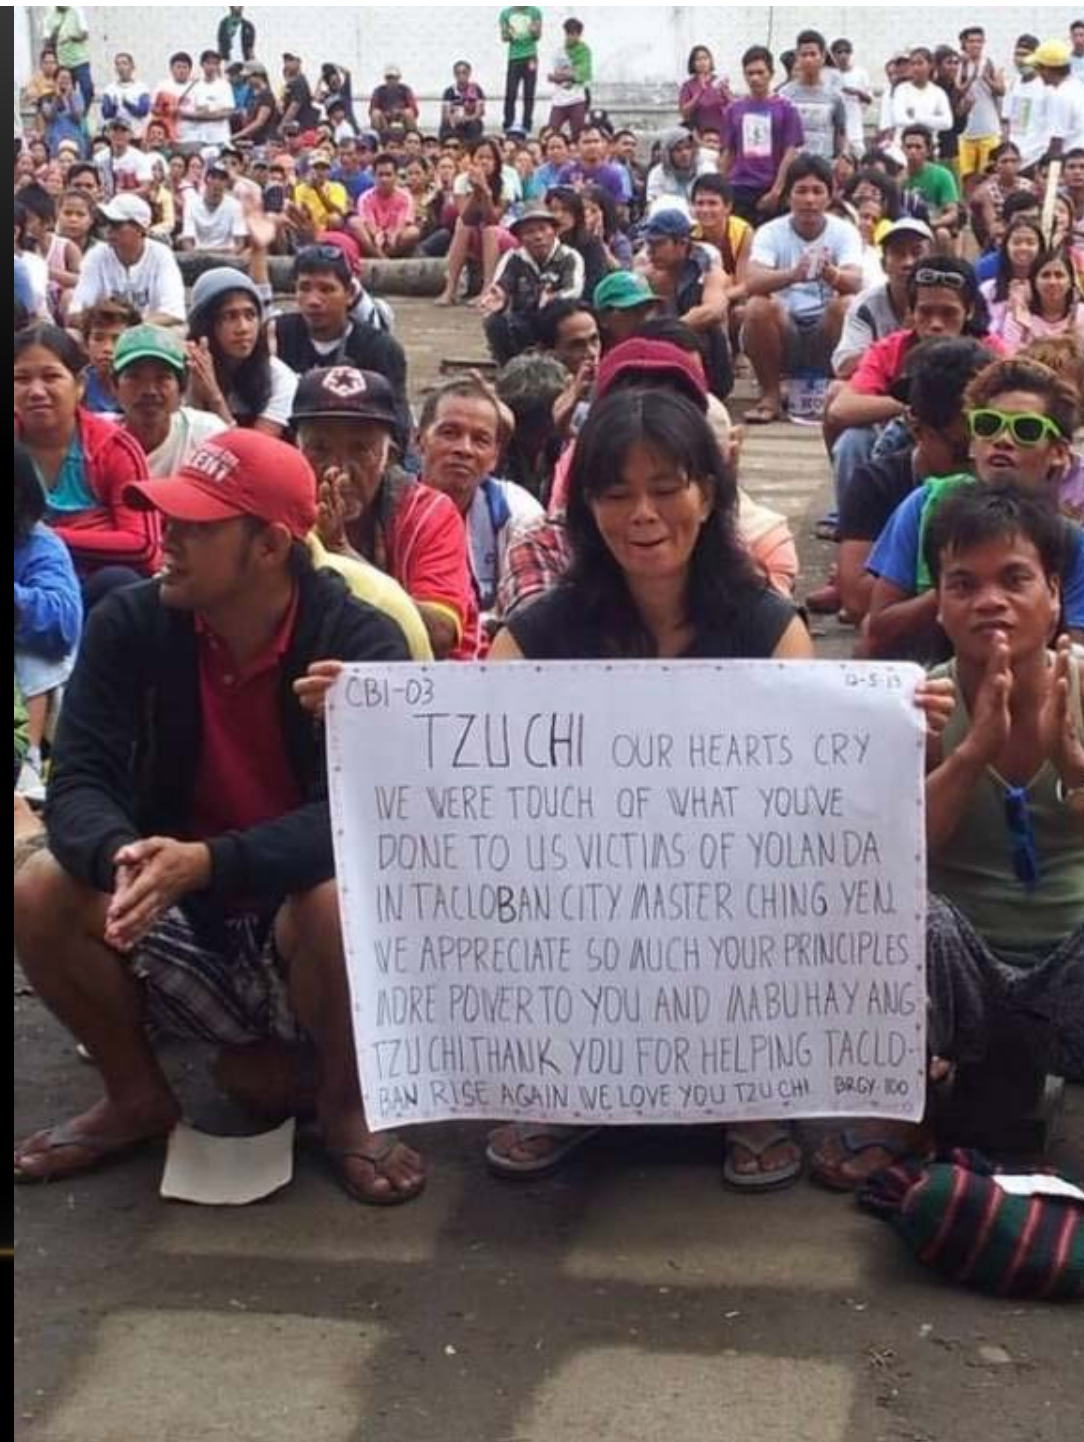 CB1-03 12-5-13
TZU CHI OUR HEARTS CRY
WE WERE TOUCH OF WHAT YOU'VE
DONE TO US VICTIMS OF YOLANDA
IN TACLOBAN CITY MASTER CHING YEN.
WE APPRECIATE SO MUCH YOUR PRINCIPLES
MORE POWER TO YOU AND MABUHAY ANG
TZU CHI.THANK YOU FOR HELPING TACLO-
BAN RISE AGAIN WE LOVE YOU TZU CHI BRGY. 100